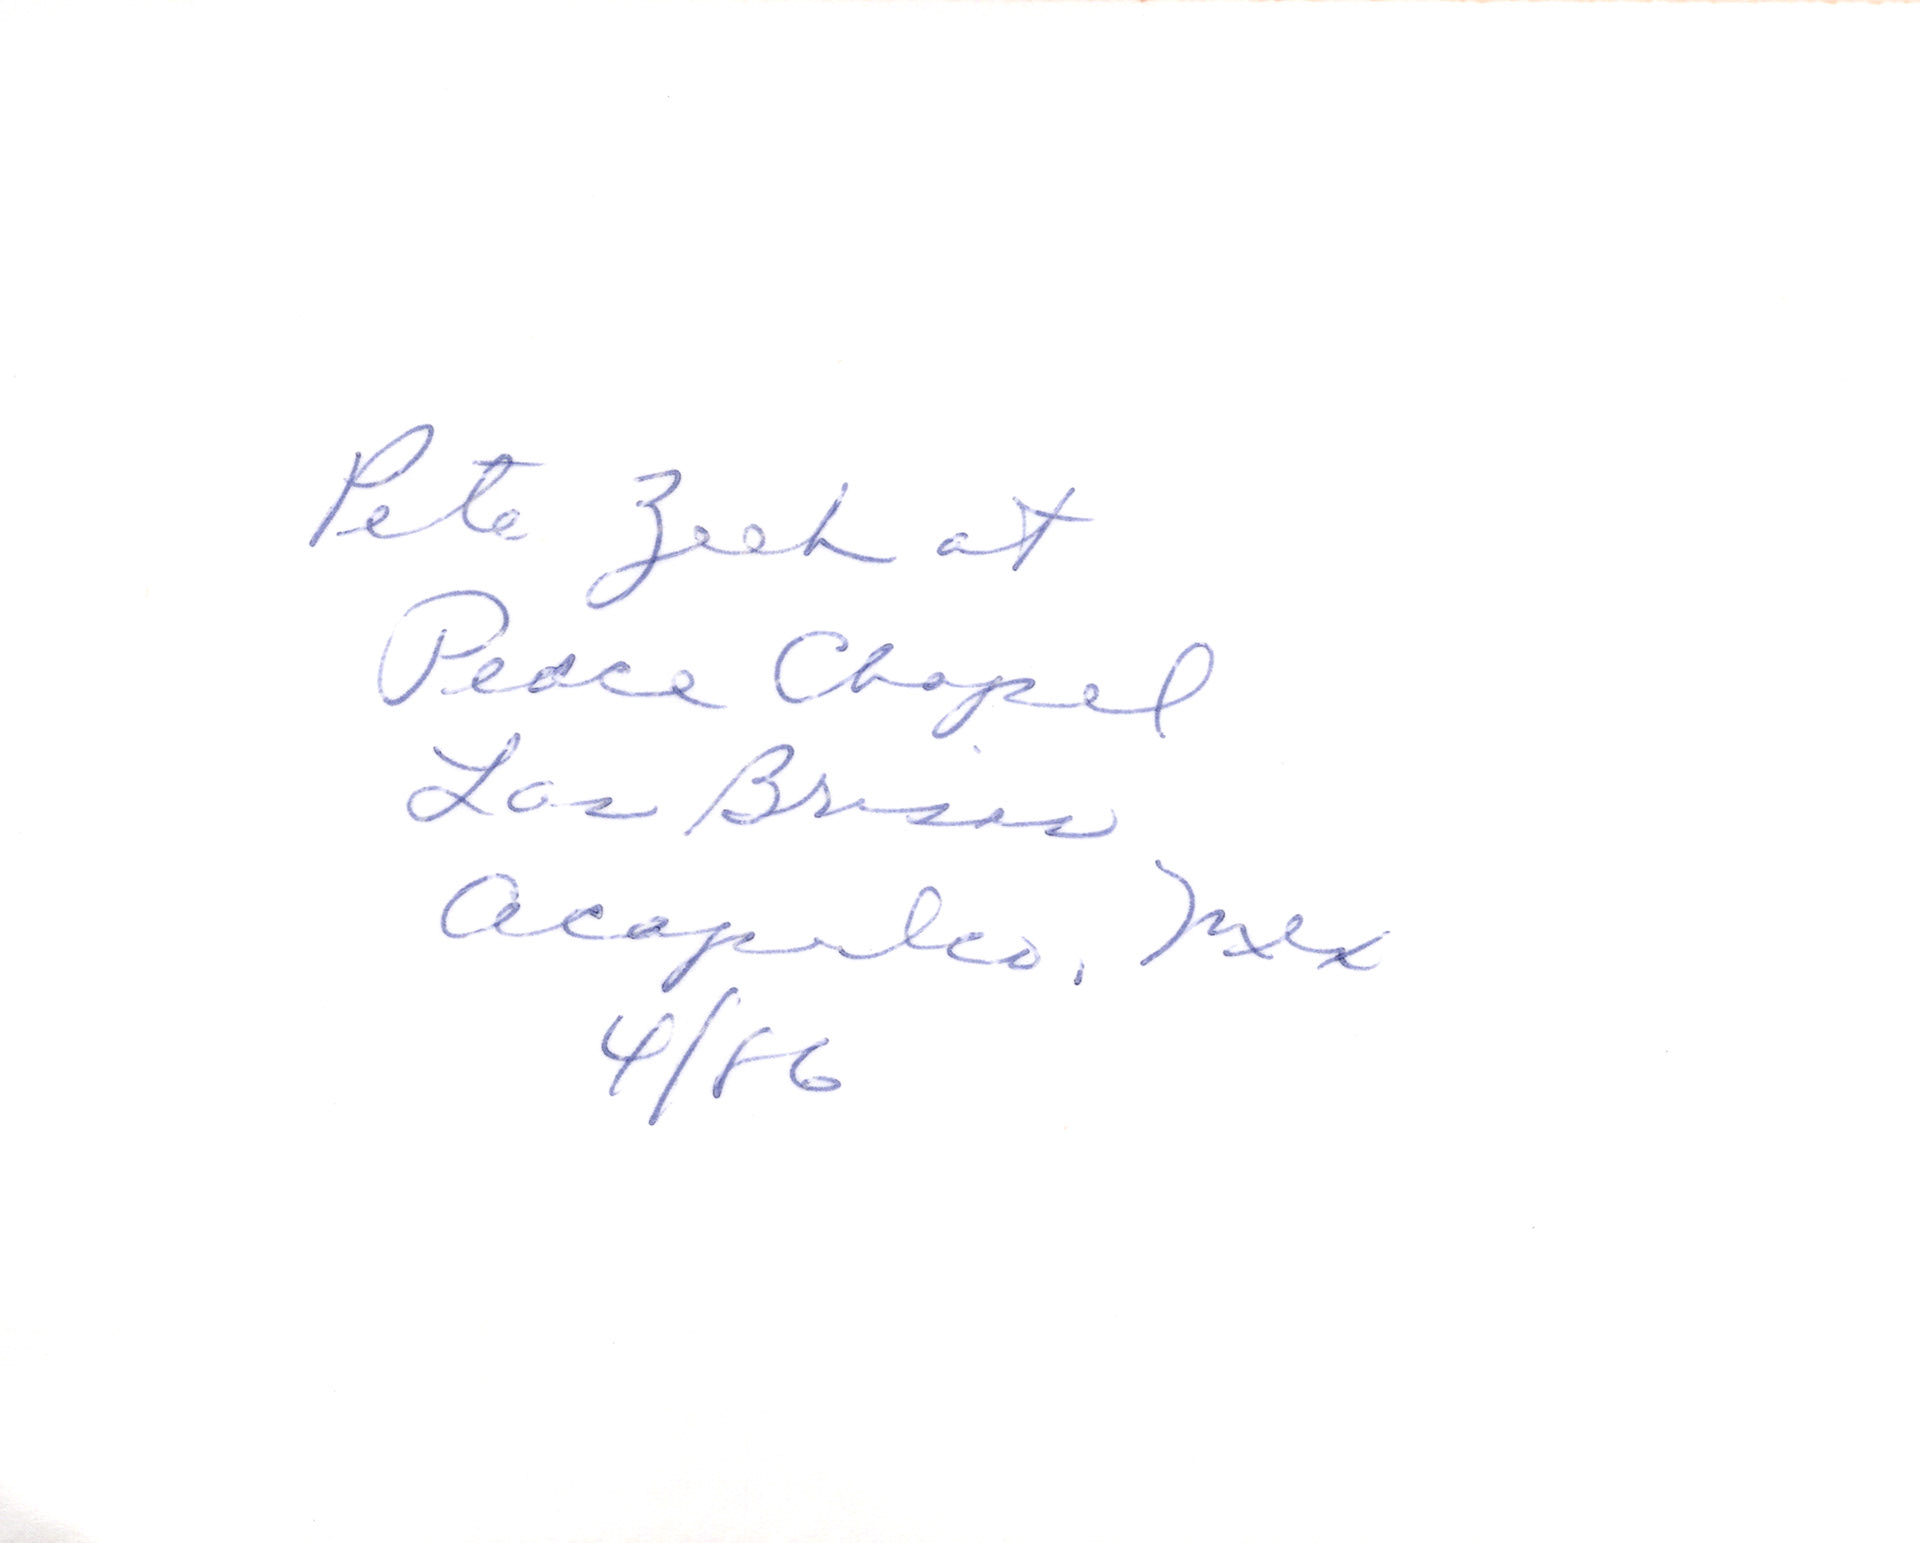 Pete Zech at
Peace Chapel
Las Brisas
Acapulco, Mex
4/86